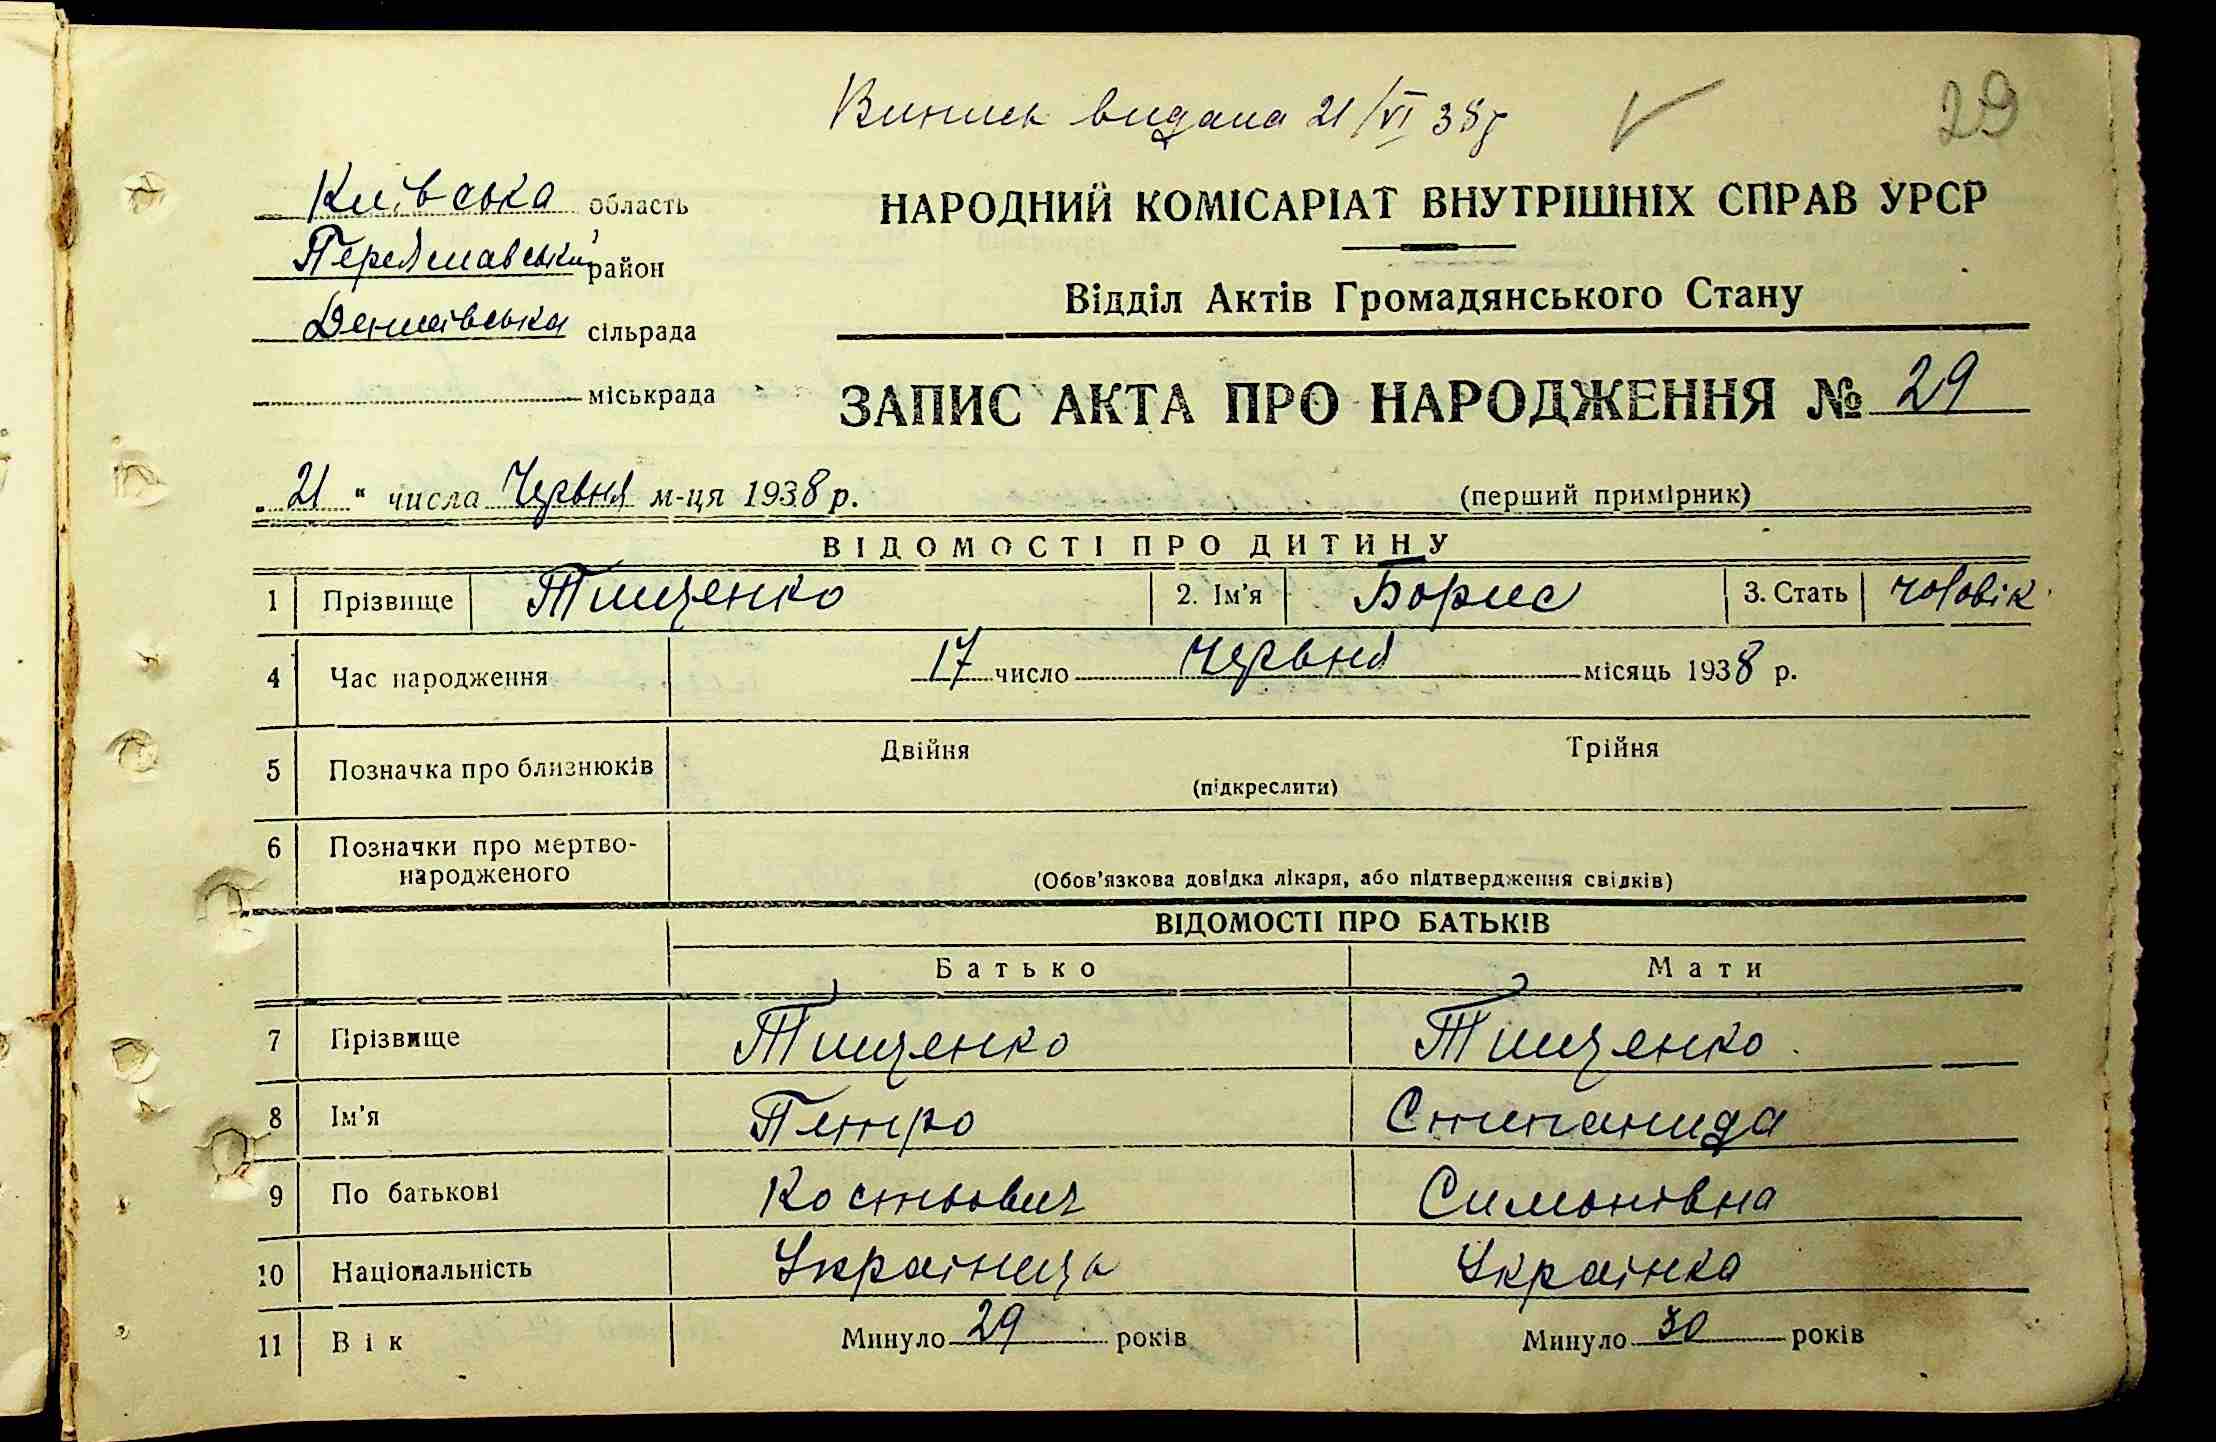 Виписк видана 21/VI 38 р
29
Київська область
Переяславський район
сільрада
міськрада
НАРОДНИЙ КОМІСАРІАТ ВНУТРІШНІХ СПРАВ УРСР
Відділ Актів Громадянського Стану
ЗАПИС АКТА ПРО НАРОДЖЕННЯ № 29
„21“ числа Червня м-ця 1938 р.
(перший примірник)
ВІДОМОСТІ ПРО ДИТИНУ
1 Прізвище Тищенко 2. Ім'я Борис 3. Стать чоловік
4 Час народження 17 число Червня місяць 1938 р.
5 Позначка про близнюків Двійня Трійня
(підкреслити)
6 Позначки про мертво-
народженого
(Обов'язкова довідка лікаря, або підтвердження свідків)
ВІДОМОСТІ ПРО БАТЬКІВ
Батько Мати
7 Прізвище Тищенко Тищенко
8 Ім'я Петро Степанида
9 По батькові Костьович Симонівна
10 Національність Українець Українка
11 Вік Минуло 29 років Минуло 30 років